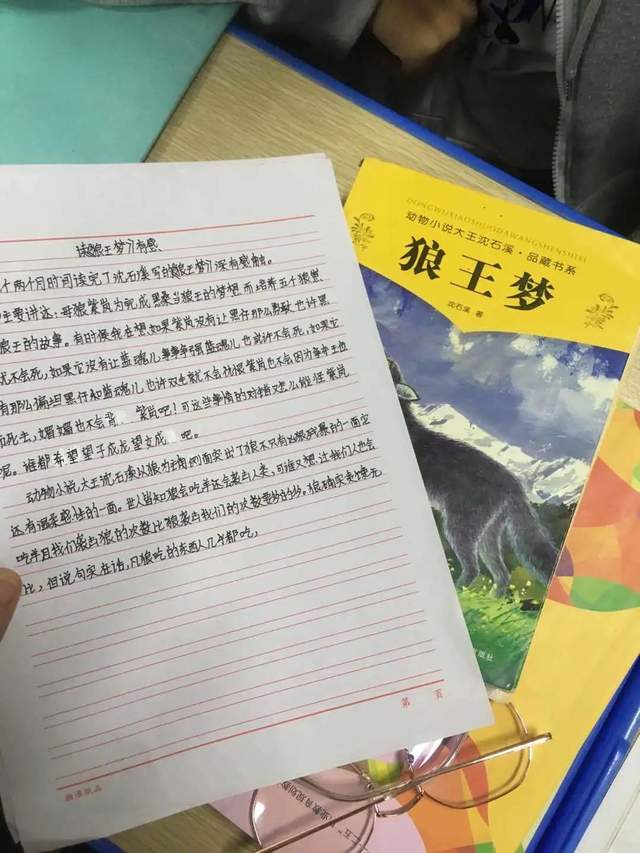 读《狼王梦》有感
个两个月时间读完了沈石溪写的《狼王梦》深有感触。
主要讲述:母狼紫岚为完成黑桑当狼王的梦想而培养五个狼崽
狼王的故事。有时候我希望如果紫岚没有让黑仔那么勇敢也许黑
就不会死,如果它没有让蓝魂儿事事争强蓝魂儿也就许不会死,如果它
有那么偏坦黑仔和蓝魂儿也许双毛就不会 紫岚也不会因为争夺王位
而死去,媚媚也不会背 紫岚吧!可这些事情的对错又怎么能怪紫岚
呢。谁都希望望子成龙望女成 吧。
动物小说大王沈石溪从狼为 的 面突出了狼不只有凶狠残暴的一面它
还有温柔感性的一面。世人皆知狼会吃羊还会袭击人类,可谁又想,让我们人也会
吃羊且我们袭击狼的次数比狼袭击我们的次数要多的多。狼确实卑馋无
比,但说句实在话,凡狼吃的东西人几乎都吃,
第 页
DONGWUXIAOSHUODAWANGSHENSHIXI
动物小说大王沈石溪·品藏书系
狼王梦
沈石溪 著
出版社